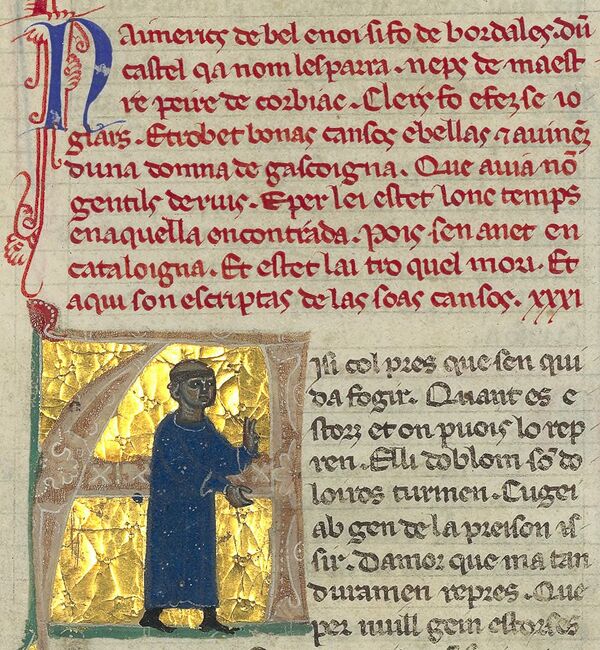 Naimerics de bel enoi si fo de bordales. dũ
castel qa nom lesparra. neps de maest
re peire de corbiac. Clers fo e fez se io
glars. Et trobet bonas cansos e bellas ⁊ avinẽz
duna domna de gascoigna. Que avia nõ
gentils de ruis. E per lei estet lonc temps
en aquella encontrada. Pois sen anet en
cataloigna. Et estet lai tro quel mori. Et
aqui son escriptas de las soas cansos. xxxi
Aisi col pres que sen qui
da fogir. Quant es e
storz et on puois lo rep
ren. E lli doblom sõ do
loiros turmen. Cugei
ab gen de la preison is
sir. Damor que ma tan
duramen repres. Que
per nuill gein estorses